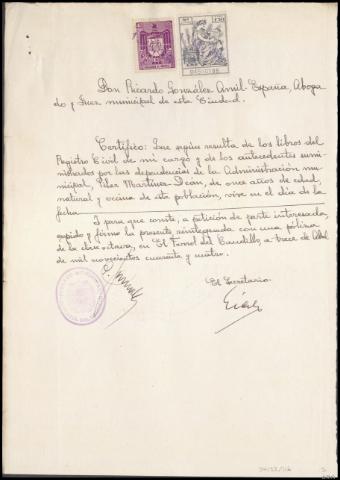 Don Ricardo González Amil-España, Aboga
do y Juez municipal de esta Ciudad.
Certifico: Que según resulta de los libros del
Registro Civil de mi cargo y de los antecedentes sumi
nistrados por las dependencias de la Administración mu
nicipal, Pilar Martínez Deán, de once años de edad,
natural y vecina de esta población, vive en el día de la
fecha
Y para que conste, a petición de parte interesada,
expido y firmo la presente, reintegrada con una póliza
de la clase octava, en El Ferrol del Caudillo a trece de Abril
de mil novecientos cuarenta y cuatro.
El Secretario.